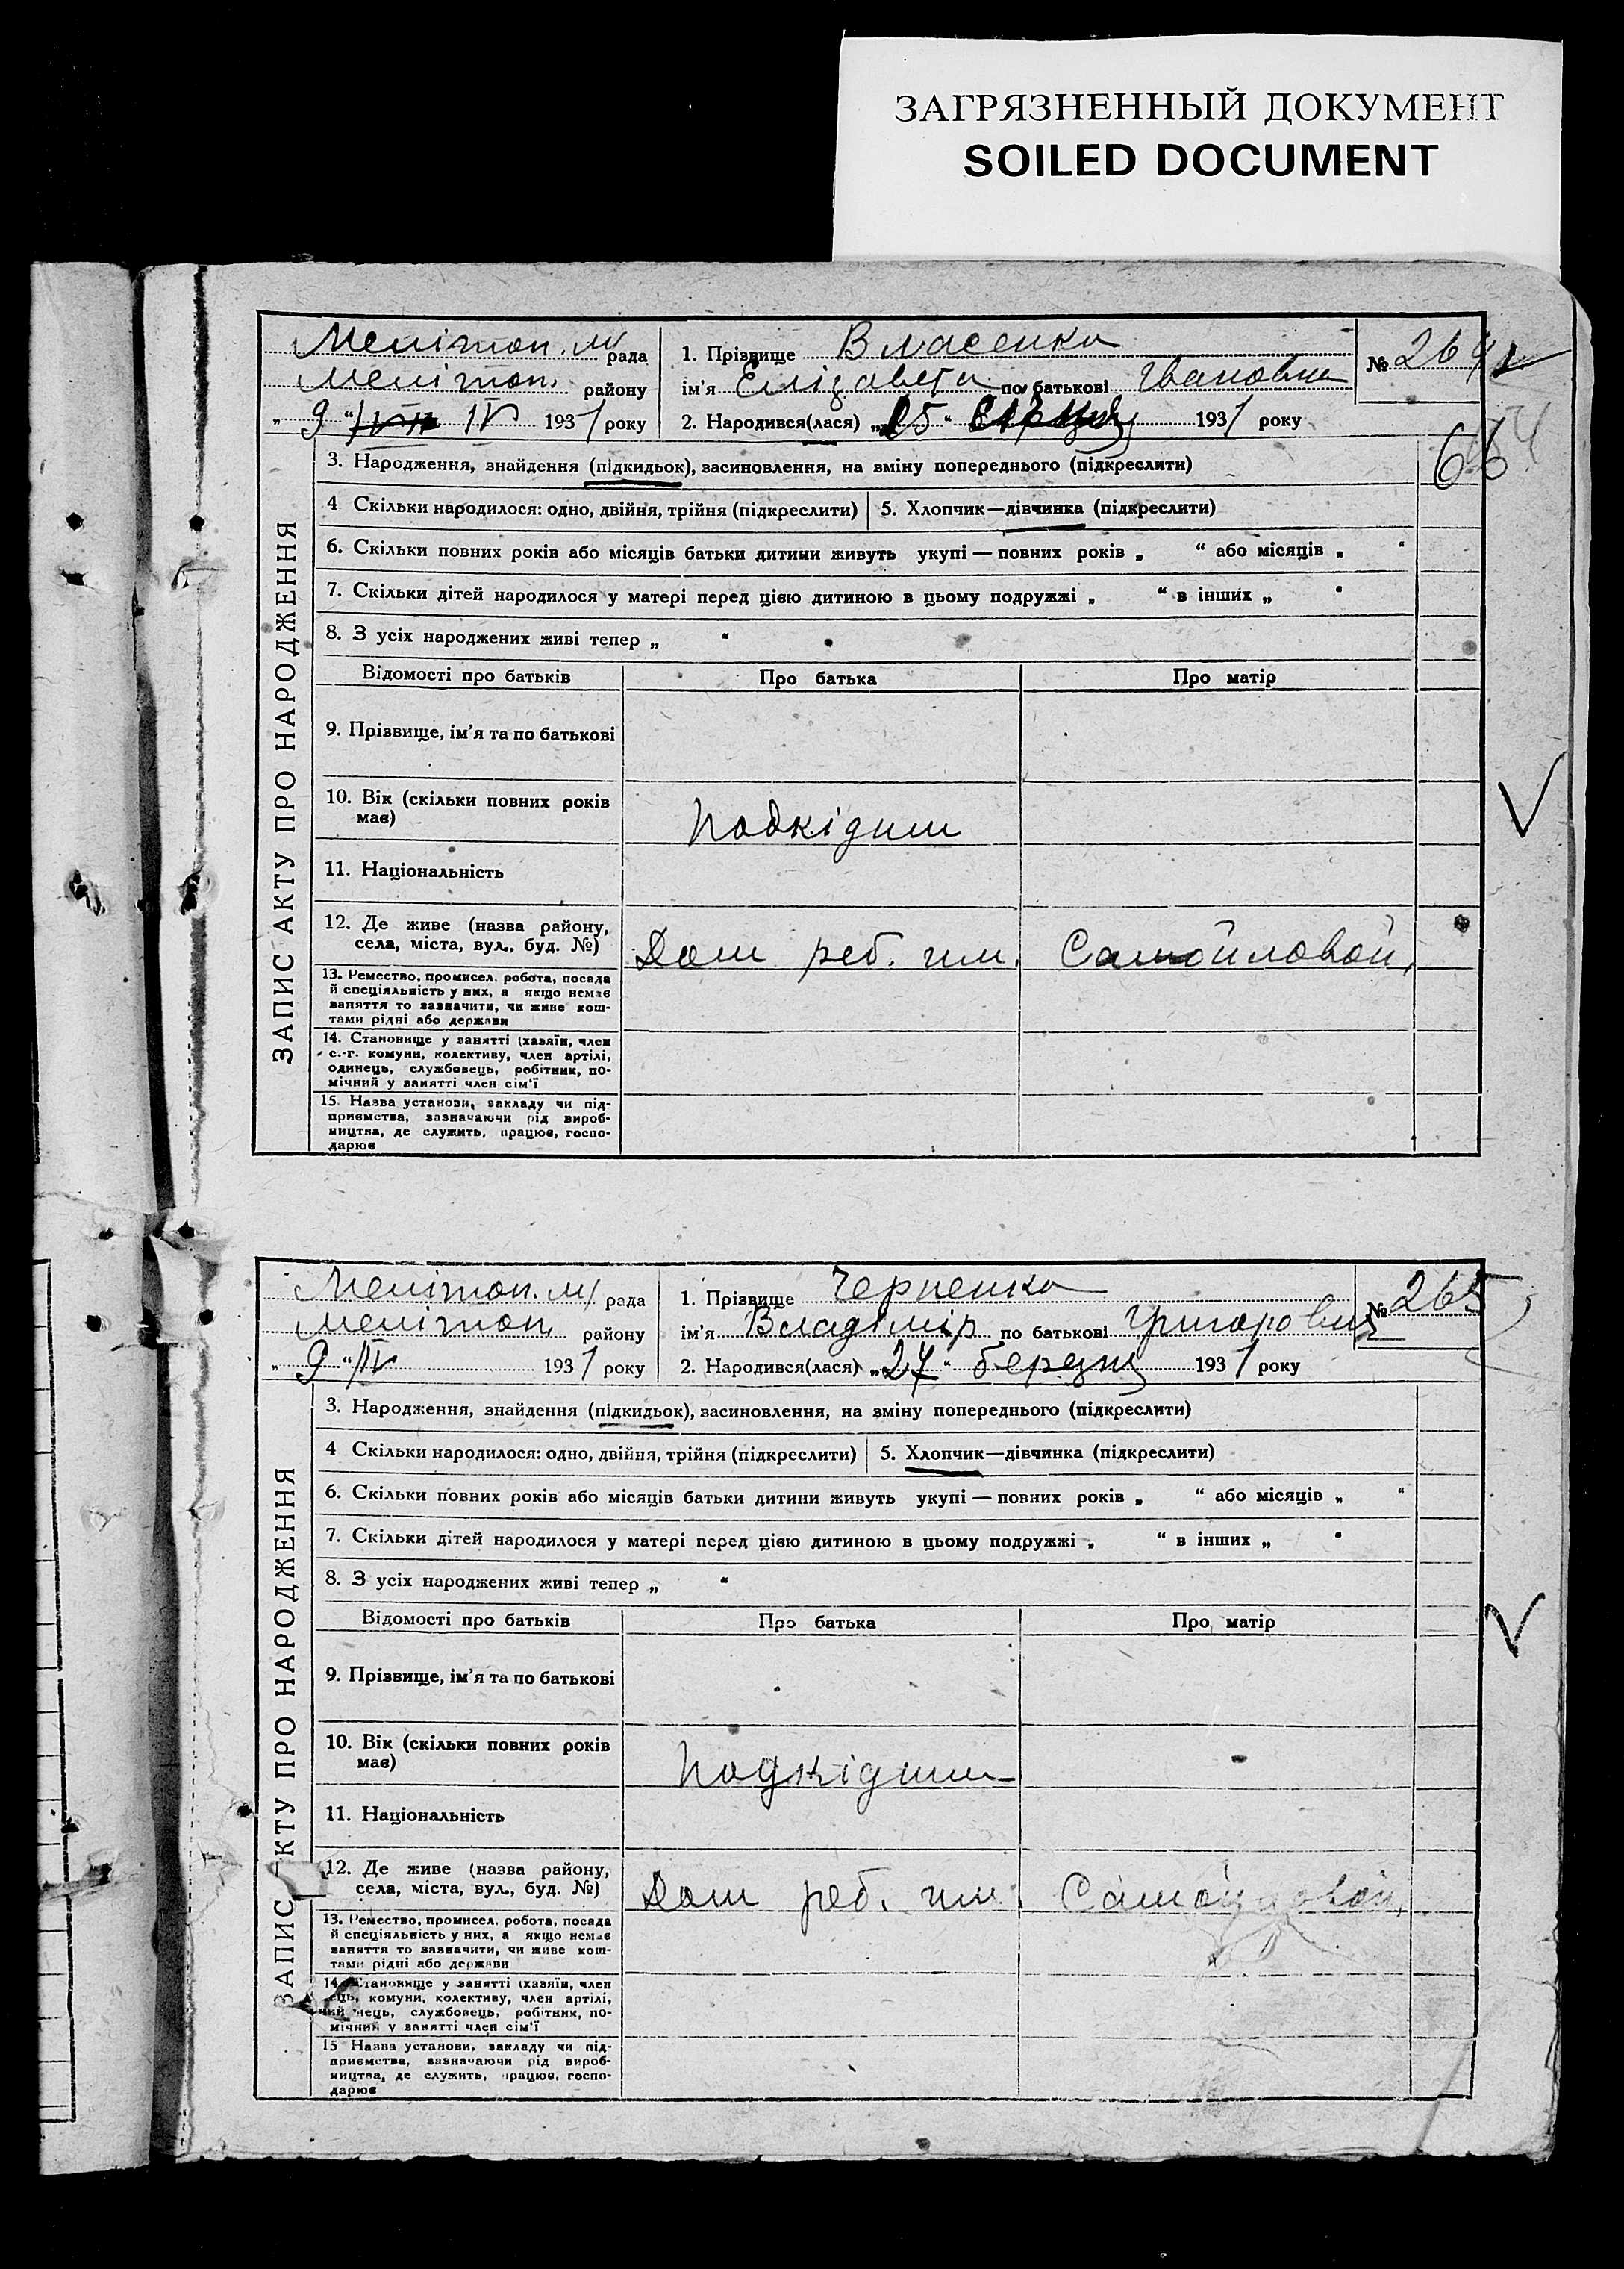 ЗАГРЯЗНЕННЫЙ ДОКУМЕНТ
SOILED DOCUMENT
ЗАПИС АКТУ ПРО НАРОДЖЕННЯ
Мелітоп. м/ рада
Мелітоп. району
„ 9 “ IV 1931 року
1. Прізвище Власенко
ім'я Елізавета по батькові Івановна
2. Народився(лася) 1931 року
№ 264
66
3. Народження, знайдення (підкидьок), засиновлення, на зміну попереднього (підкреслити)
4 Скільки народилося: одно, двійня, трійня (підкреслити) 5. Хлопчик—дівчинка (підкреслити)
6. Скільки повних років або місяців батьки дитини живуть укупі — повних років „ “ або місяців „ “
7. Скільки дітей народилося у матері перед цією дитиною в цьому подружжі „ “ в інших „ “
8. З усіх народжених живі тепер „ “
Відомості про батьків Про батька Про матір
9. Прізвище, ім'я та по батькові
10. Вік (скільки повних років
має)
Подкідиш
11. Національність
12. Де живе (назва району,
села, міста, вул., буд. №)
Дом реб. им. Самойловой.
13. Ремество, промисел, робота, посада
й спеціяльність у них, а якщо немає
заняття то зазначити, чи живе кош-
тами рідні або держави
14. Становище у занятті (хазяїн, член
с.-г. комуни, колективу, член артілі,
одинець, службовець, робітник, по-
мічний у занятті член сім'ї
15. Назва установи, закладу чи під-
приємства, зазначаючи рід вироб-
ництва, де служить, працює, госпо-
дарює
ЗАПИС АКТУ ПРО НАРОДЖЕННЯ
Мелітоп. м/ рада
Мелітоп. району
„ 9 “ IV 1931 року
1. Прізвище Черненко
ім'я Владімір по батькові Григорович
2. Народився(лася) „27“ березня 1931 року
№ 265
3. Народження, знайдення (підкидьок), засиновлення, на зміну попереднього (підкреслити)
4 Скільки народилося: одно, двійня, трійня (підкреслити) 5. Хлопчик—дівчинка (підкреслити)
6. Скільки повних років або місяців батьки дитини живуть укупі — повних років „ “ або місяців „ “
7. Скільки дітей народилося у матері перед цією дитиною в цьому подружжі „ “ в інших „ “
8. З усіх народжених живі тепер „ “
Відомості про батьків Про батька Про матір
9. Прізвище, ім'я та по батькові
10. Вік (скільки повних років
має)
Подкідиш
11. Національність
12. Де живе (назва району,
села, міста, вул., буд. №)
Дом реб. им. Самойловой.
13. Ремество, промисел, робота, посада
й спеціяльність у них, а якщо немає
заняття то зазначити, чи живе кош-
тами рідні або держави
14. Становище у занятті (хазяїн, член
комуни, колективу, член артілі,
службовець, робітник, по-
мічний у занятті член сім'ї
15 Назва установи, закладу чи під-
приємства, зазначаючи рід вироб-
ництва, де служить, працює, госпо-
дарює